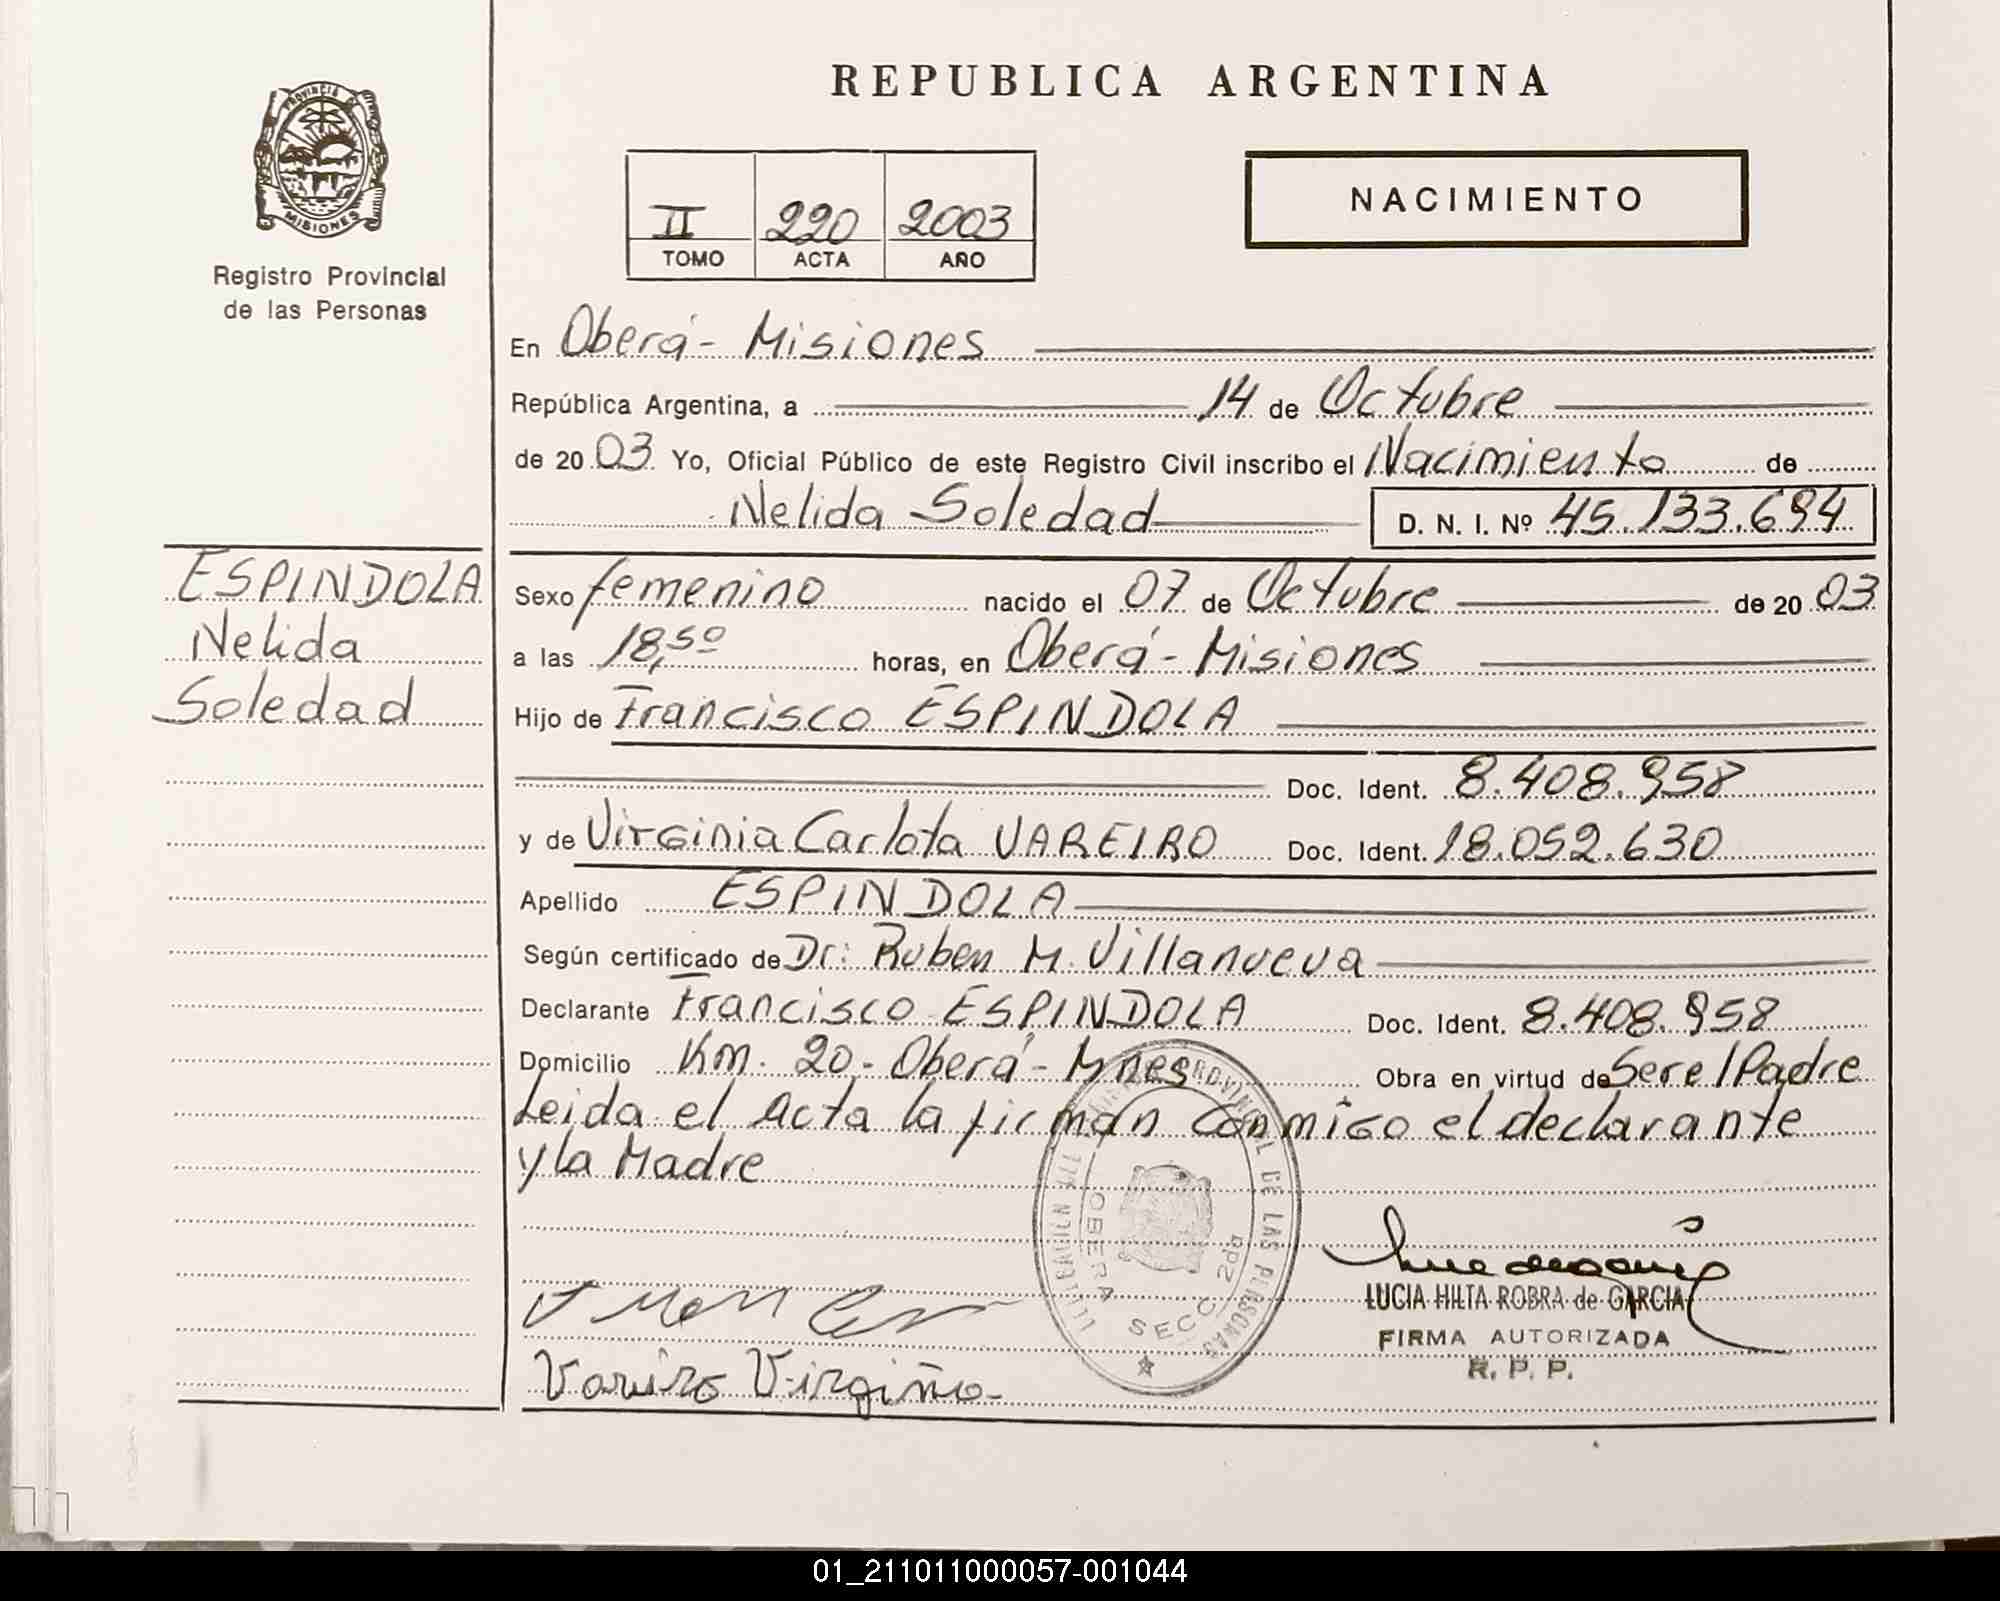 REPUBLICA ARGENTINA
PROVINCIA DE
MISIONES
Registro Provincial
de las Personas
II 220 2003
TOMO ACTA AÑO
NACIMIENTO
En Oberá - Misiones
República Argentina, a 14 de Octubre
de 2003 Yo, Oficial Público de este Registro Civil inscribo el Nacimiento de
Nelida Soledad D. N. I. Nº 45.133.694
ESPINDOLA
Nelida
Soledad
Sexo femenino nacido el 07 de Octubre de 2003
a las 18,50 horas, en Oberá - Misiones
Hijo de Francisco ESPINDOLA
Doc. Ident. 8.408.958
y de Virginia Carlota VAREIRO Doc. Ident. 18.052.630
Apellido ESPINDOLA
Según certificado de Dr: Ruben M. Villanueva
Declarante Francisco ESPINDOLA Doc. Ident. 8.408.958
Domicilio Km. 20 - Oberá - Mnes Obra en virtud de Ser el Padre
Leida el acta la firman conmigo el declarante
y la Madre
PROVINCIAL DE LAS PERSONAS
OBERA SECC. 2da
LUCIA HILTA ROBRA de GARCIA
FIRMA AUTORIZADA
R. P. P.
Virginia
01_211011000057-001044